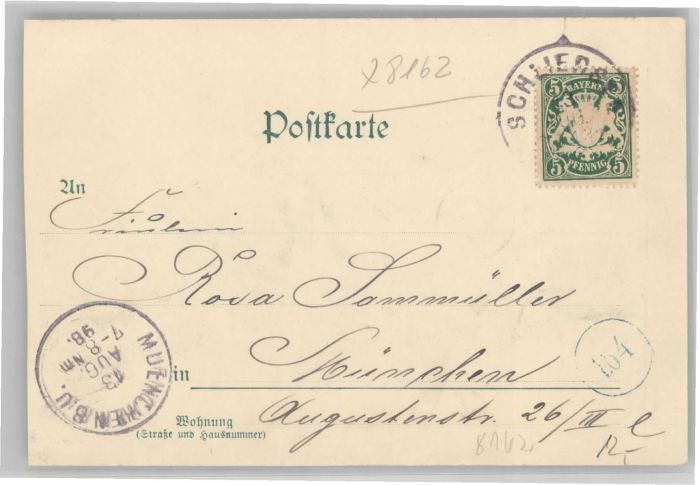 x8162
SCHLIERSEE
5 BAYERN 5
5 PFENNIG 5
Postkarte
An
Fräulein
Rosa Sammüller
in München
MUENCHEN B.U.
13 AUG.
7-8 Nm
98.
164
Wohnung
(Straße und Hausnummer)
Augustenstr. 26/III l
8162
12,-